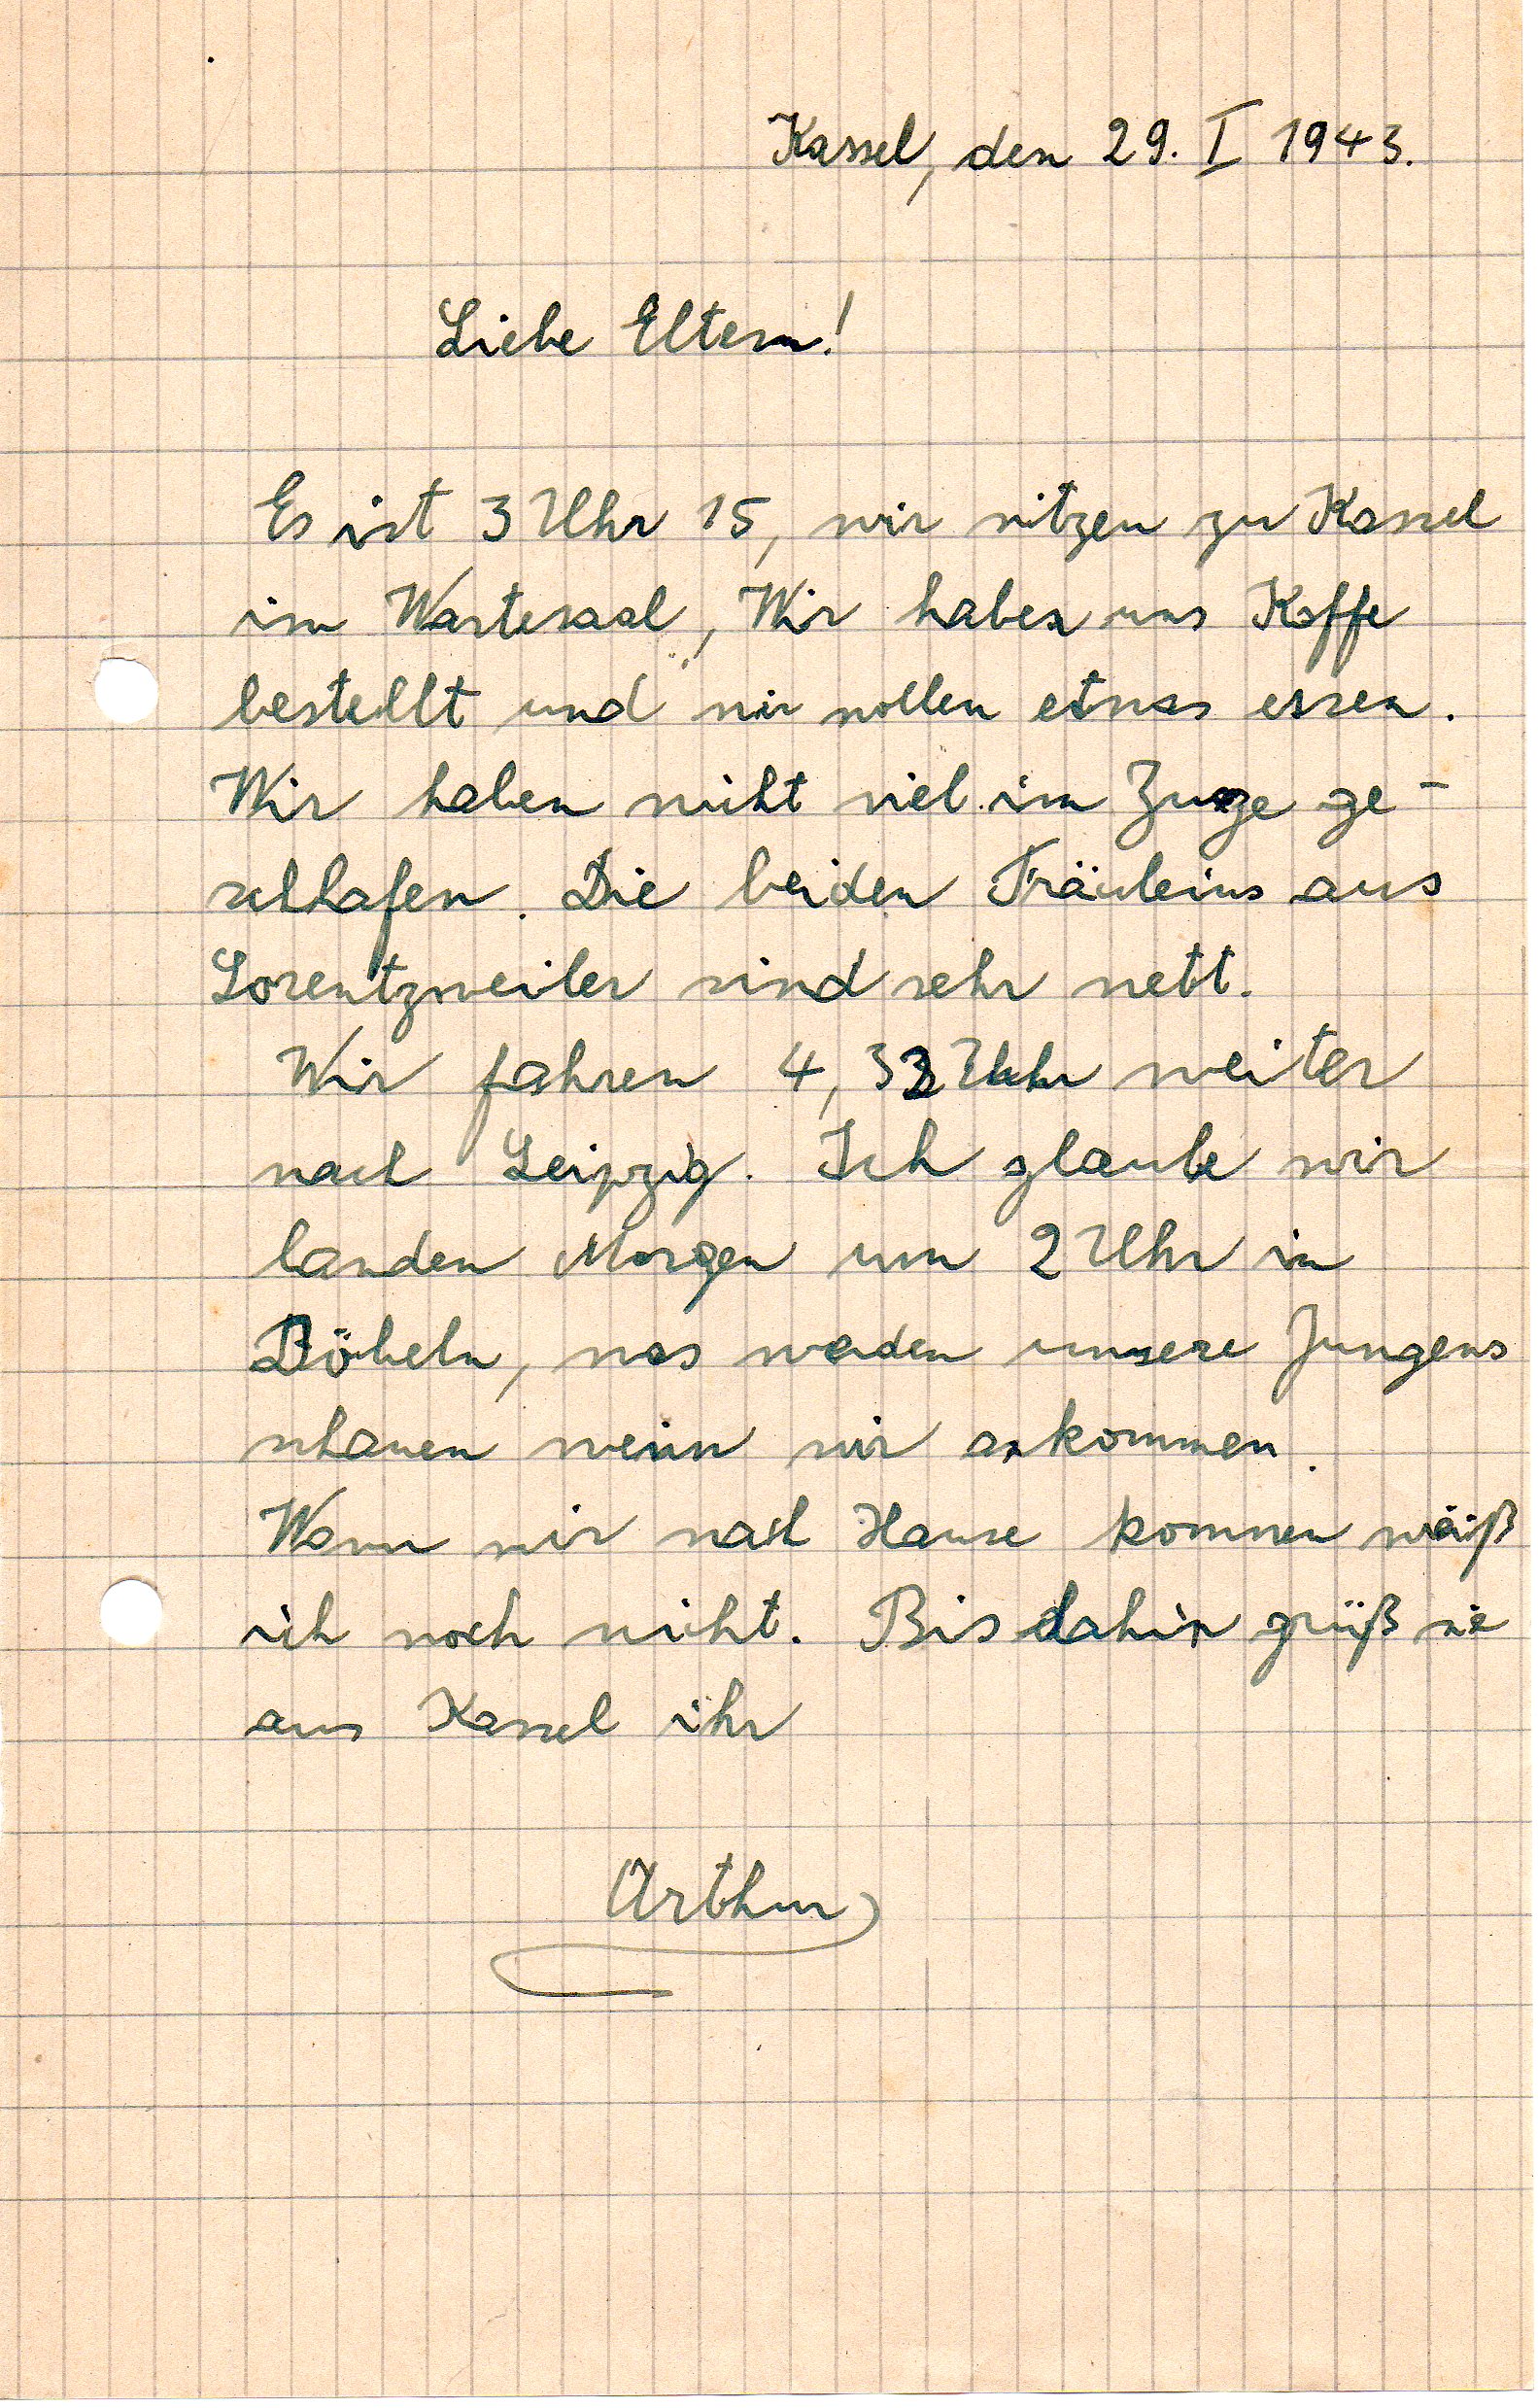 Kassel, den 29. I 1943.
Liebe Eltern!
Es ist 3 Uhr 15, wir sitzen zu Kassel
im Wartesaal, Wir haben uns Kaffe
bestellt und wir wollen etwas essen.
Wir haben nicht viel im Zuge ge-
schlafen. Die beiden Fräuleins aus
Lorentzweiler sind sehr nett.
Wir fahren 4, 33 Uhr weiter
nach Leipzig. Ich glaube wir
landen Morgen um 2 Uhr in
Döbeln, was werden unsere Jungens
schauen wenn wir ankommen.
Wann wir nach Hause kommen weiß
ich noch nicht. Bis dahin grüß sie
aus Kassel ihr
Arthur